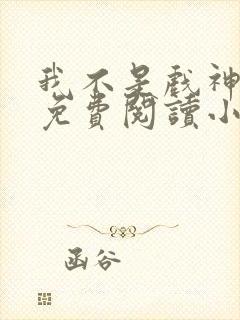 我不是戲神
免費閱讀小
函谷